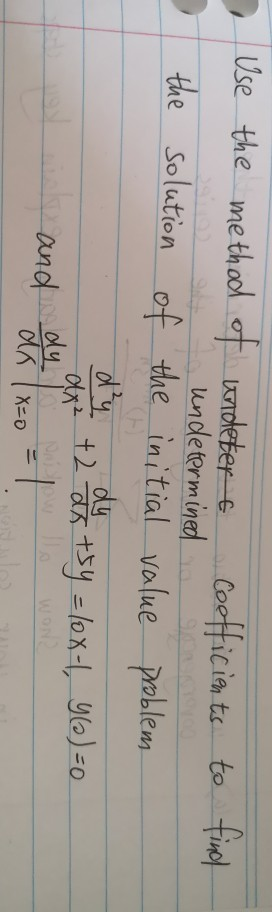 Use the method of undeter c coefficients to find
undetermined
the solution of the initial value problem
d²y/dx² + 2 dy/dx + 5y = 10x-1, y(0)=0
and dy/dx |x=0 = 1